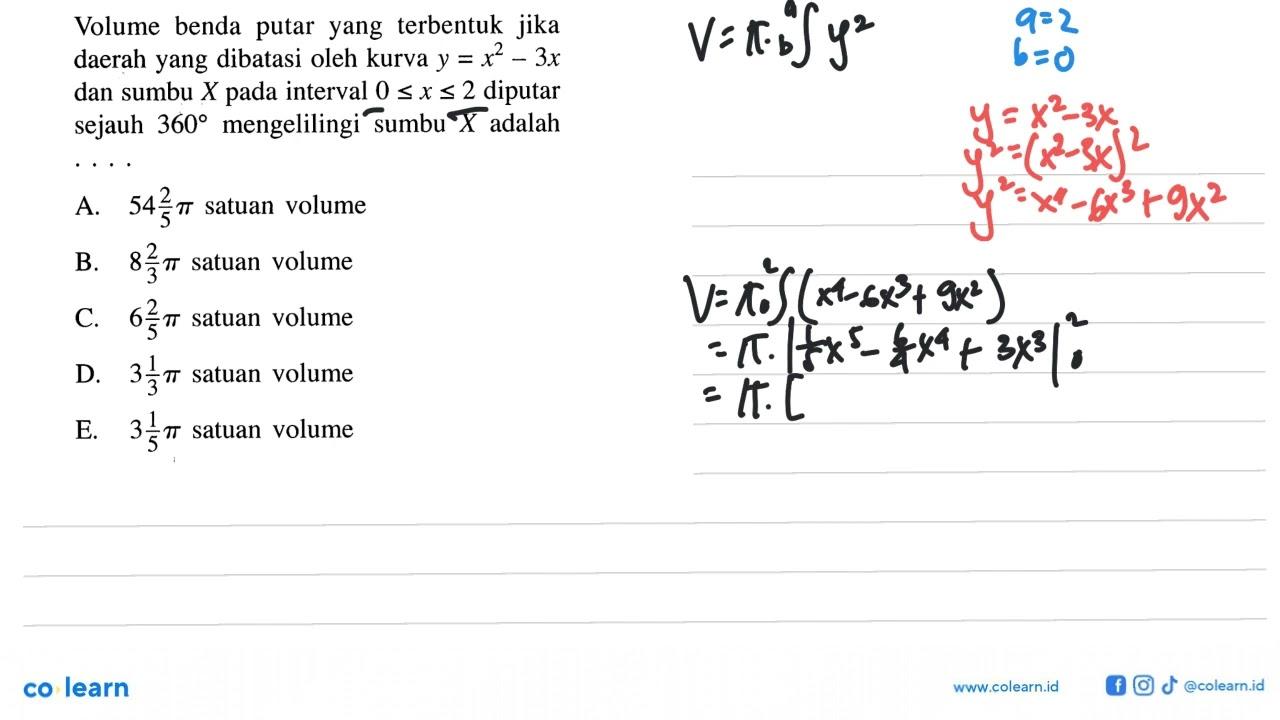 Volume benda putar yang terbentuk jika
daerah yang dibatasi oleh kurva y = x² – 3x
dan sumbu X pada interval 0 ≤ x ≤ 2 diputar
sejauh 360° mengelilingi sumbu X adalah
. . . .
A. 54 2/5 π satuan volume
B. 8 2/3 π satuan volume
C. 6 2/5 π satuan volume
D. 3 1/3 π satuan volume
E. 3 1/5 π satuan volume
V = π. b∫a y²
a=2
b=0
y = x²-3x
y² = (x²-3x)²
y² = x⁴-6x³+9x²
V = π 0∫2 (x⁴-6x³+9x²)
= π. |1/5 x⁵ - 6/4 x⁴ + 3x³|2 0
= π. [
co learn
www.colearn.id
@colearn.id